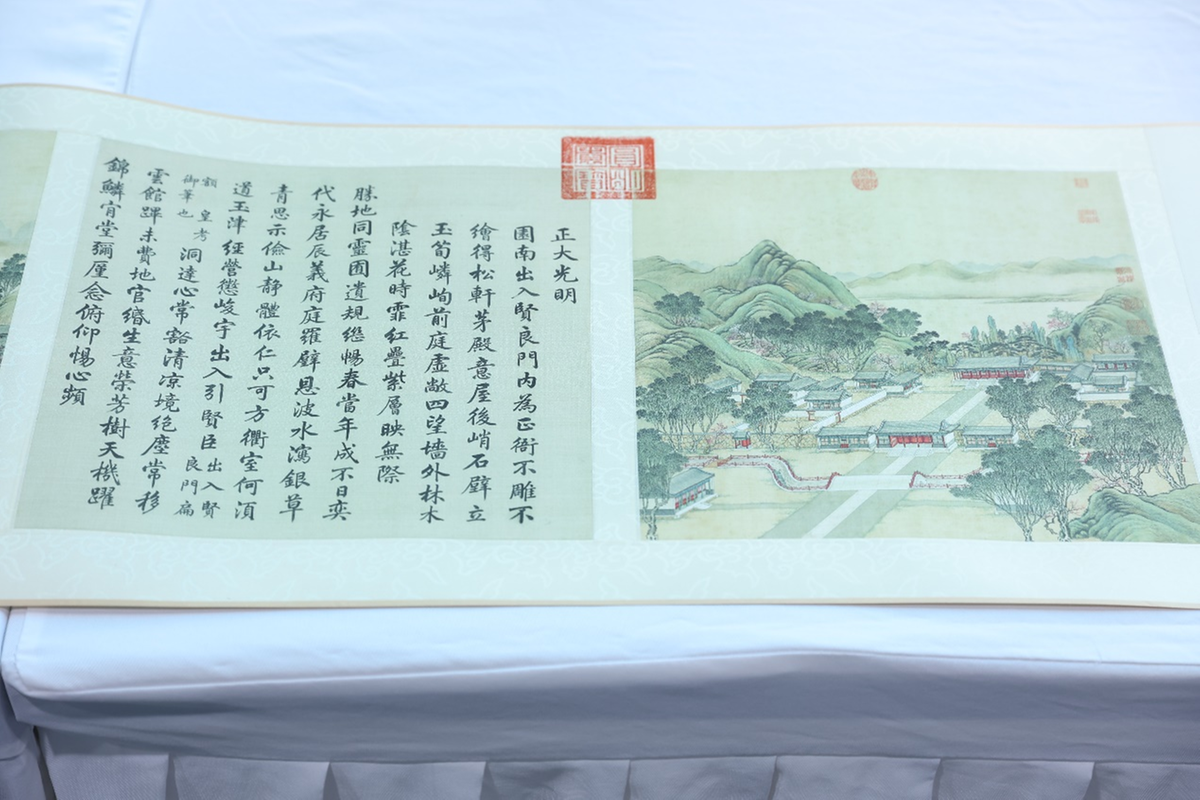 正大光明
園南出入賢良門内為正衙不雕不
繪得松軒茅殿意屋後峭石壁立
玉筍嶙峋前庭虛敞四望墻外林木
陰湛花時霏紅疊紫層映無際
勝地同靈囿遺規繼暢春當年成不日奕
代永居辰義府庭羅璧恩波水瀉銀草
青思示儉山靜體依仁只可方衢室何須
道玉津經營懲峻宇出入引賢臣
出入賢
良門扁
額皇考
御筆也
洞達心常豁清凉境絶塵常移
雲館蹕未費地官緡生意榮芳樹天機躍
錦鱗肯堂彌厪念俯仰惕心頻